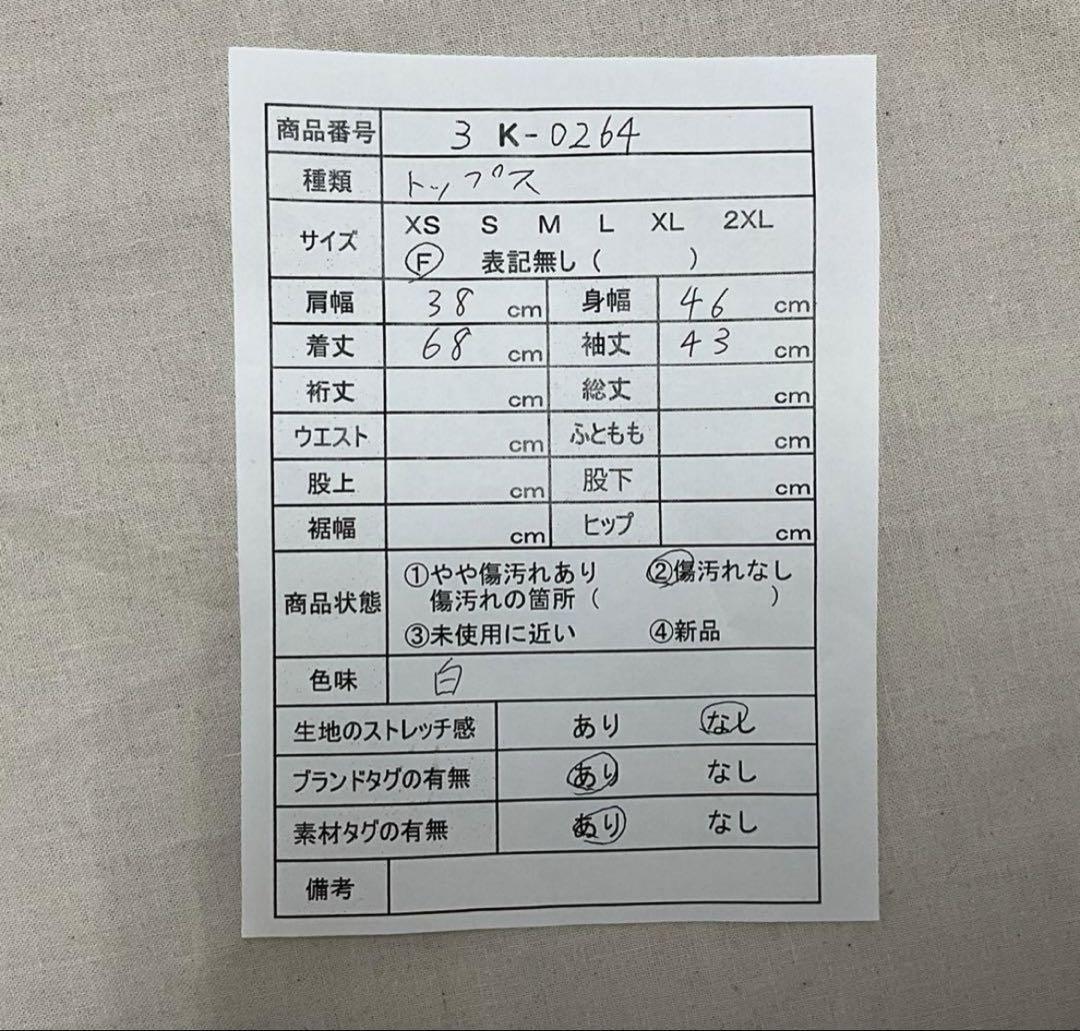 商品番号 3 K-0264
種類 トップス
サイズ XS S M L XL 2XL
F 表記無し ( )
肩幅 38 cm 身幅 46 cm
着丈 68 cm 袖丈 43 cm
裄丈 cm 総丈 cm
ウエスト cm ふともも cm
股上 cm 股下 cm
裾幅 cm ヒップ cm
商品状態 ①やや傷汚れあり ②傷汚れなし
傷汚れの箇所 ( )
③未使用に近い ④新品
色味 白
生地のストレッチ感 あり なし
ブランドタグの有無 あり なし
素材タグの有無 あり なし
備考